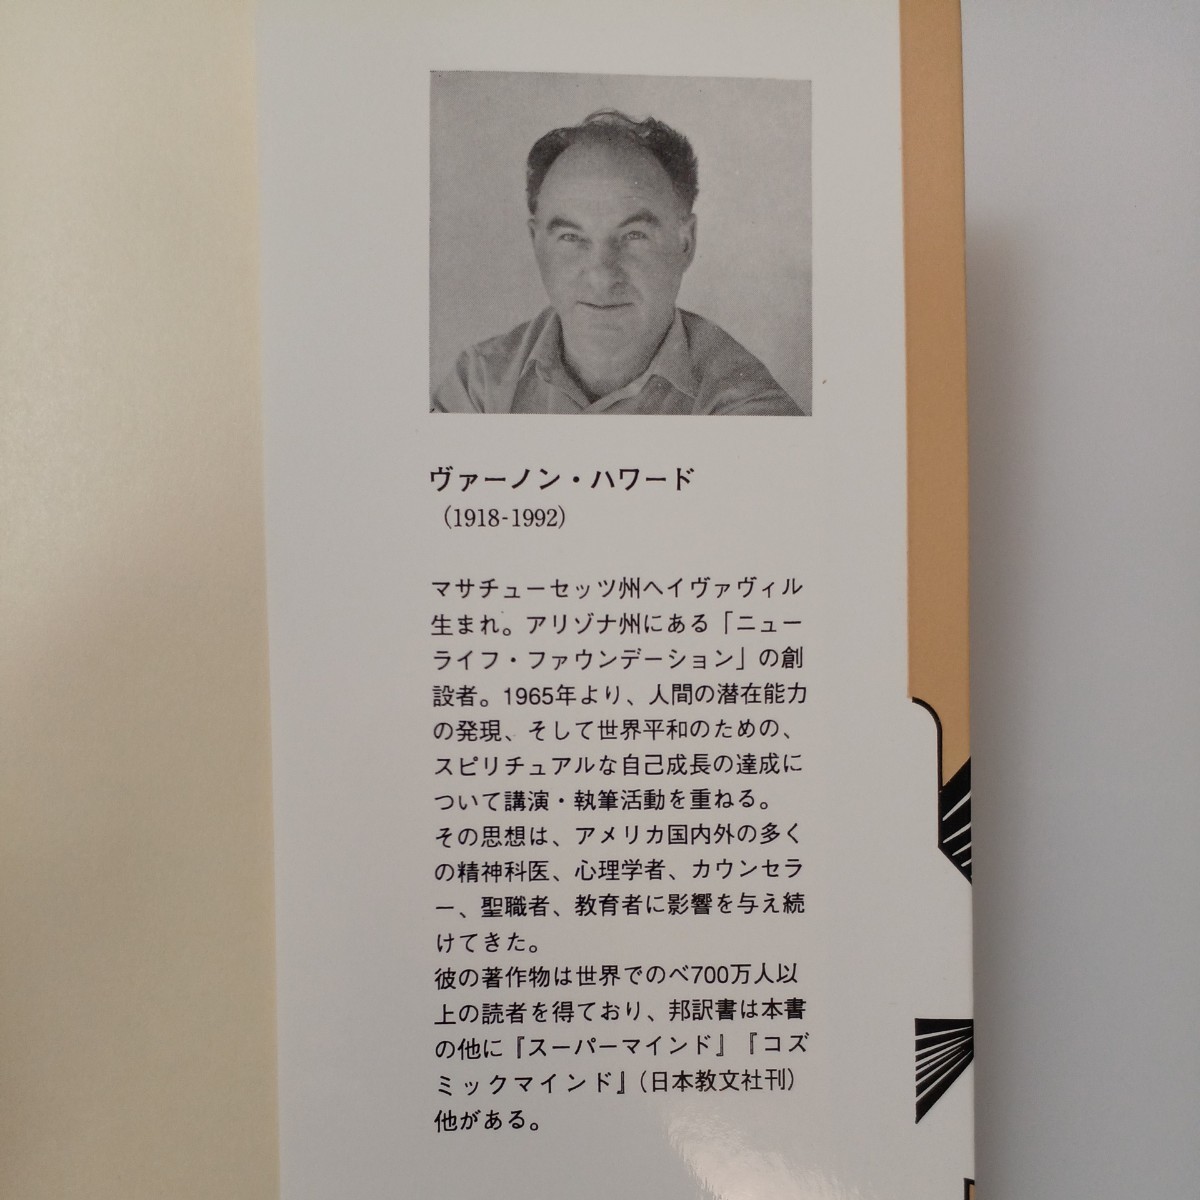 ヴァーノン・ハワード
(1918-1992)
マサチューセッツ州ヘイヴァヴィル
生まれ。アリゾナ州にある「ニュー
ライフ・ファウンデーション」の創
設者。1965年より、人間の潜在能力
の発現、そして世界平和のための、
スピリチュアルな自己成長の達成に
ついて講演・執筆活動を重ねる。
その思想は、アメリカ国内外の多く
の精神科医、心理学者、カウンセラ
ー、聖職者、教育者に影響を与え続
けてきた。
彼の著作物は世界でのべ700万人以
上の読者を得ており、邦訳書は本書
の他に『スーパーマインド』『コズ
ミックマインド』(日本教文社刊)
他がある。